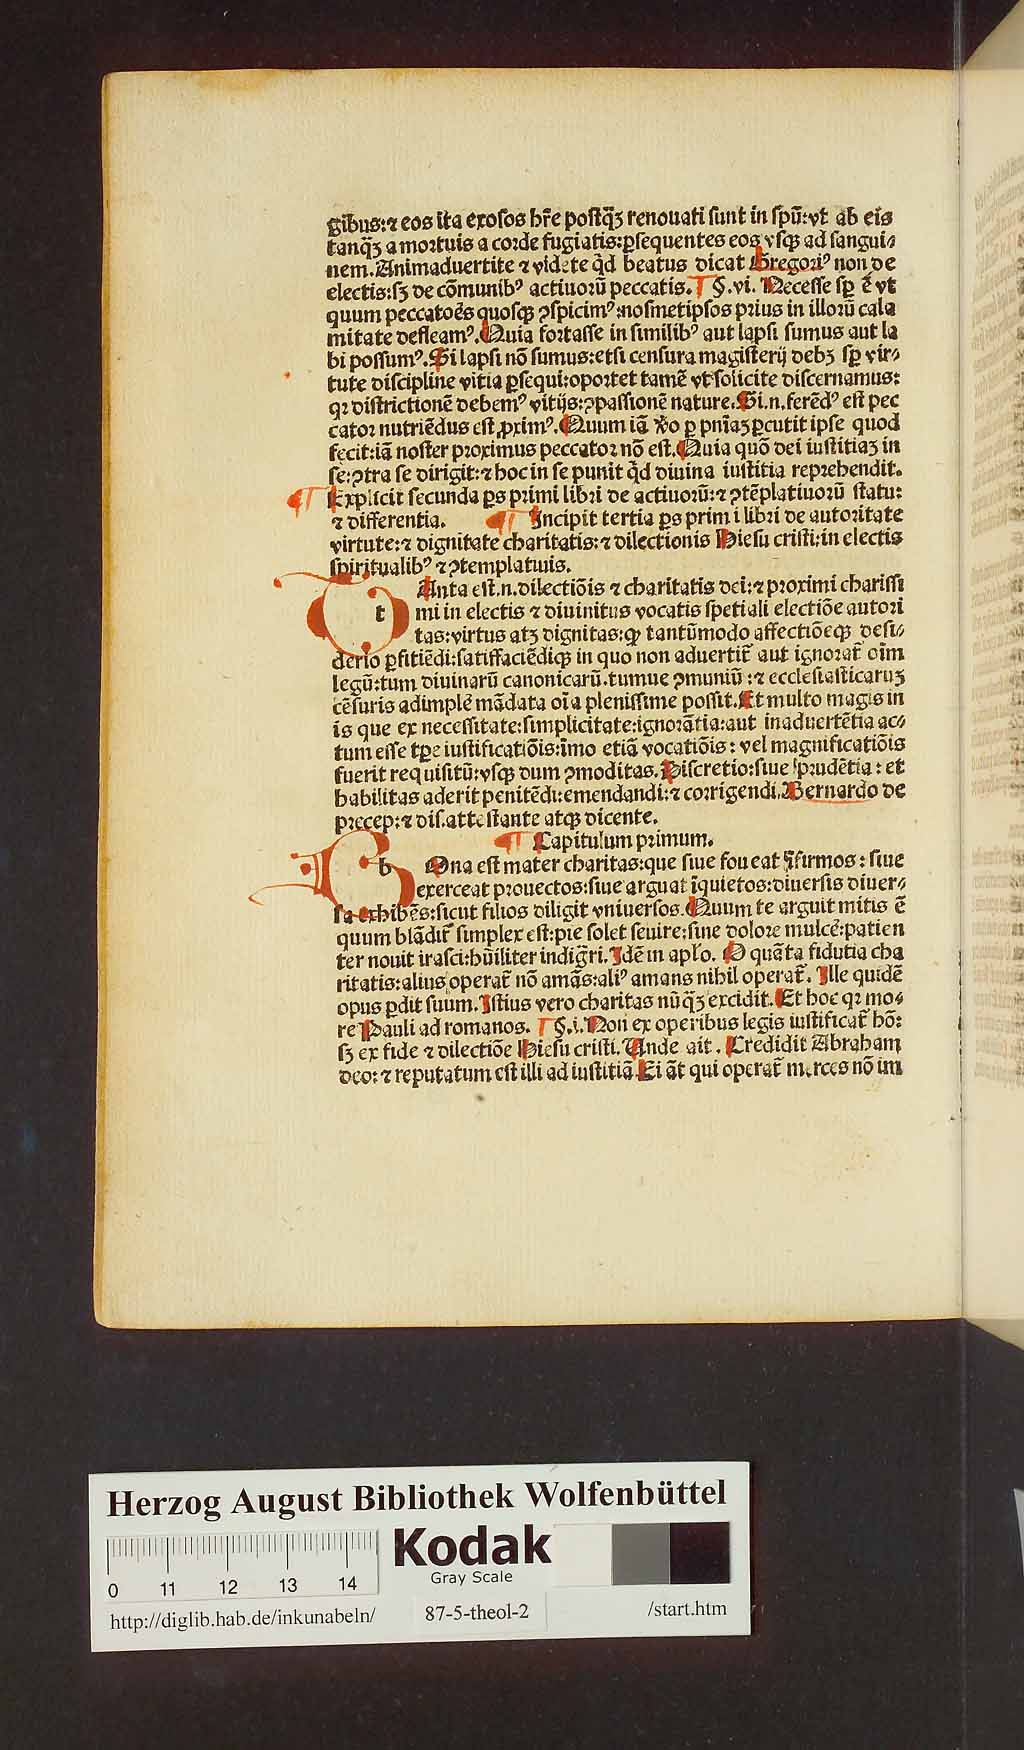 gibus:⁊ eos ita exosos hr̃e postq̃ꝫ renouati sunt in spũ:vt ab eis
tanq̃ꝫ a mortuis a corde fugiatis:ꝑsequentes eos vsqꝫ ad sangui⸗
nem. Animaduertite ⁊ videte q̃d beatus dicat Gregoriꝰ non de
electis:sꝫ de cõmunibꝰ actiuorũ peccatis. ¶ §. vi. Necesse sꝑ ẽ vt
quum peccatoẽs quosqꝫ ꝯspicimꝰ:nosmetipsos prius in illorũ cala
mitate defleamꝰ. Quia fortasse in similibꝰ aut lapsi sumus aut la
bi possumꝰ. Si lapsi nõ sumus:etsi censura magisterij debꝫ sꝑ vir⸗
tute discipline vitia ꝑsequi:oportet tamẽ vt solicite discernamus:
qꝛ districtionẽ debemꝰ vitijs:ꝯpassionẽ nature. Si.n.ferẽdꝰ est pec
cator nutriẽdus est ꝓximꝰ. Quum iã ꝟo ꝑ pniãꝫ ꝑcutit ipse quod
fecit:iã noster proximus peccator nõ est. Quia quõ dei iustitiaꝫ in
se:ꝯtra se dirigit:⁊ hoc in se punit q̃d diuina iustitia reprehendit.
¶ Explicit secunda ps primi libri de actiuorũ:⁊ ꝯtẽplatiuorũ statu:
⁊ differentia. ¶ Incipit tertia ps prim i libri de autoritate
virtute:⁊ dignitate charitatis:⁊ dilectionis Hiesu cristi:in electis
spiritualibꝰ ⁊ ꝯtemplatiuis.
t Anta est.n.dilectiõis ⁊ charitatis dei:⁊ proximi charissi
mi in electis ⁊ diuinitus vocatis spetiali electiõe autori
tas:virtus atꝫ dignitas:ꝙ tantũmodo affectiõeqꝫ desi⸗
derio ꝑfitiẽdi:satiffaciẽdiqꝫ in quo non aduertit̃ aut ignorat̃ oĩm
legũ:tum diuinarũ canonicarũ.tumue ꝯmuniũ:⁊ ecclesiasticaruꝫ
cẽsuris adimplẽ mãdata oĩa plenissime possit. Et multo magis in
ĩs que ex necessitate:simplicitate:ignorãtia:aut inaduertẽtia ac⸗
tum esse tp̃e iustificatiõis:ĩmo etiã vocatiõis: vel magnificatiõis
fuerit requisitũ:vsqꝫ dum ꝯmoditas. Discretio:siue prudẽtia: et
habilitas aderit penitẽdi:emendandi:⁊ corrigendi. Bernardo de
precep:⁊ dis.attestante atqꝫ dicente.
¶ Capitulum primum.
b Ona est mater charitas:que siue foueat ĩfirmos: siue
exerceat prouectos:siue arguat ĩquietos:diuersis diuer⸗
sa exhibẽs:sicut filios diligit vniuersos. Quum te arguit mitis ẽ
quum blãdit̃ simplex est:pie solet seuire:sine dolore mulcẽ:patien
ter nouit irasci:hũiliter indig̃ri. Idẽ in apl̃o. O quãta fidutia cha
ritatis:alius operat̃ nõ amãs:aliꝰ amans nihil operat̃. Ille quidẽ
opus ꝑdit suum. Istius vero charitas nũq̃ꝫ excidit. Et hoc qꝛ mo⸗
re Pauli ad romanos. ¶ §.i. Non ex operibus legis iustificat̃ hõ:
sꝫ ex fide ⁊ dilectiõe Hiesu cristi. Unde ait. Credidit Abraham
deo: ⁊ reputatum est illi ad iustitiã Ei ãt qui operat̃ merces nõ im
Herzog August Bibliothek Wolfenbüttel
Kodak
Gray Scale
0 11 12 13 14
http://diglib.hab.de/inkunabeln/ 87-5-theol-2 /start.htm